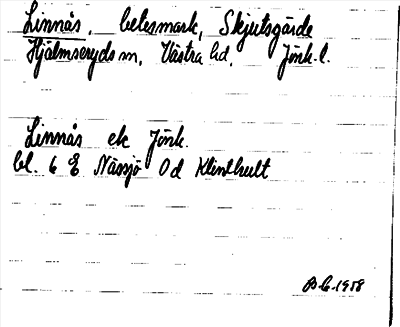 Linnås, betesmark, Skjutsgärde
Hjälmseryds sn, Västra hd, Jönk. l.
Linnås ek Jönk.
bl. 6 E Nässjö 0d Klinthult
1958